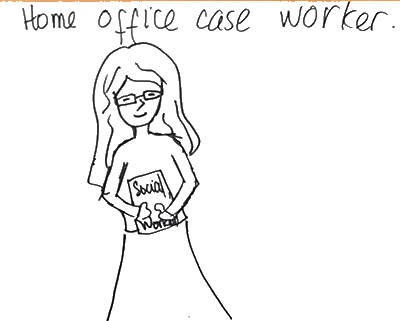 Home office case worker.
Social
Worker